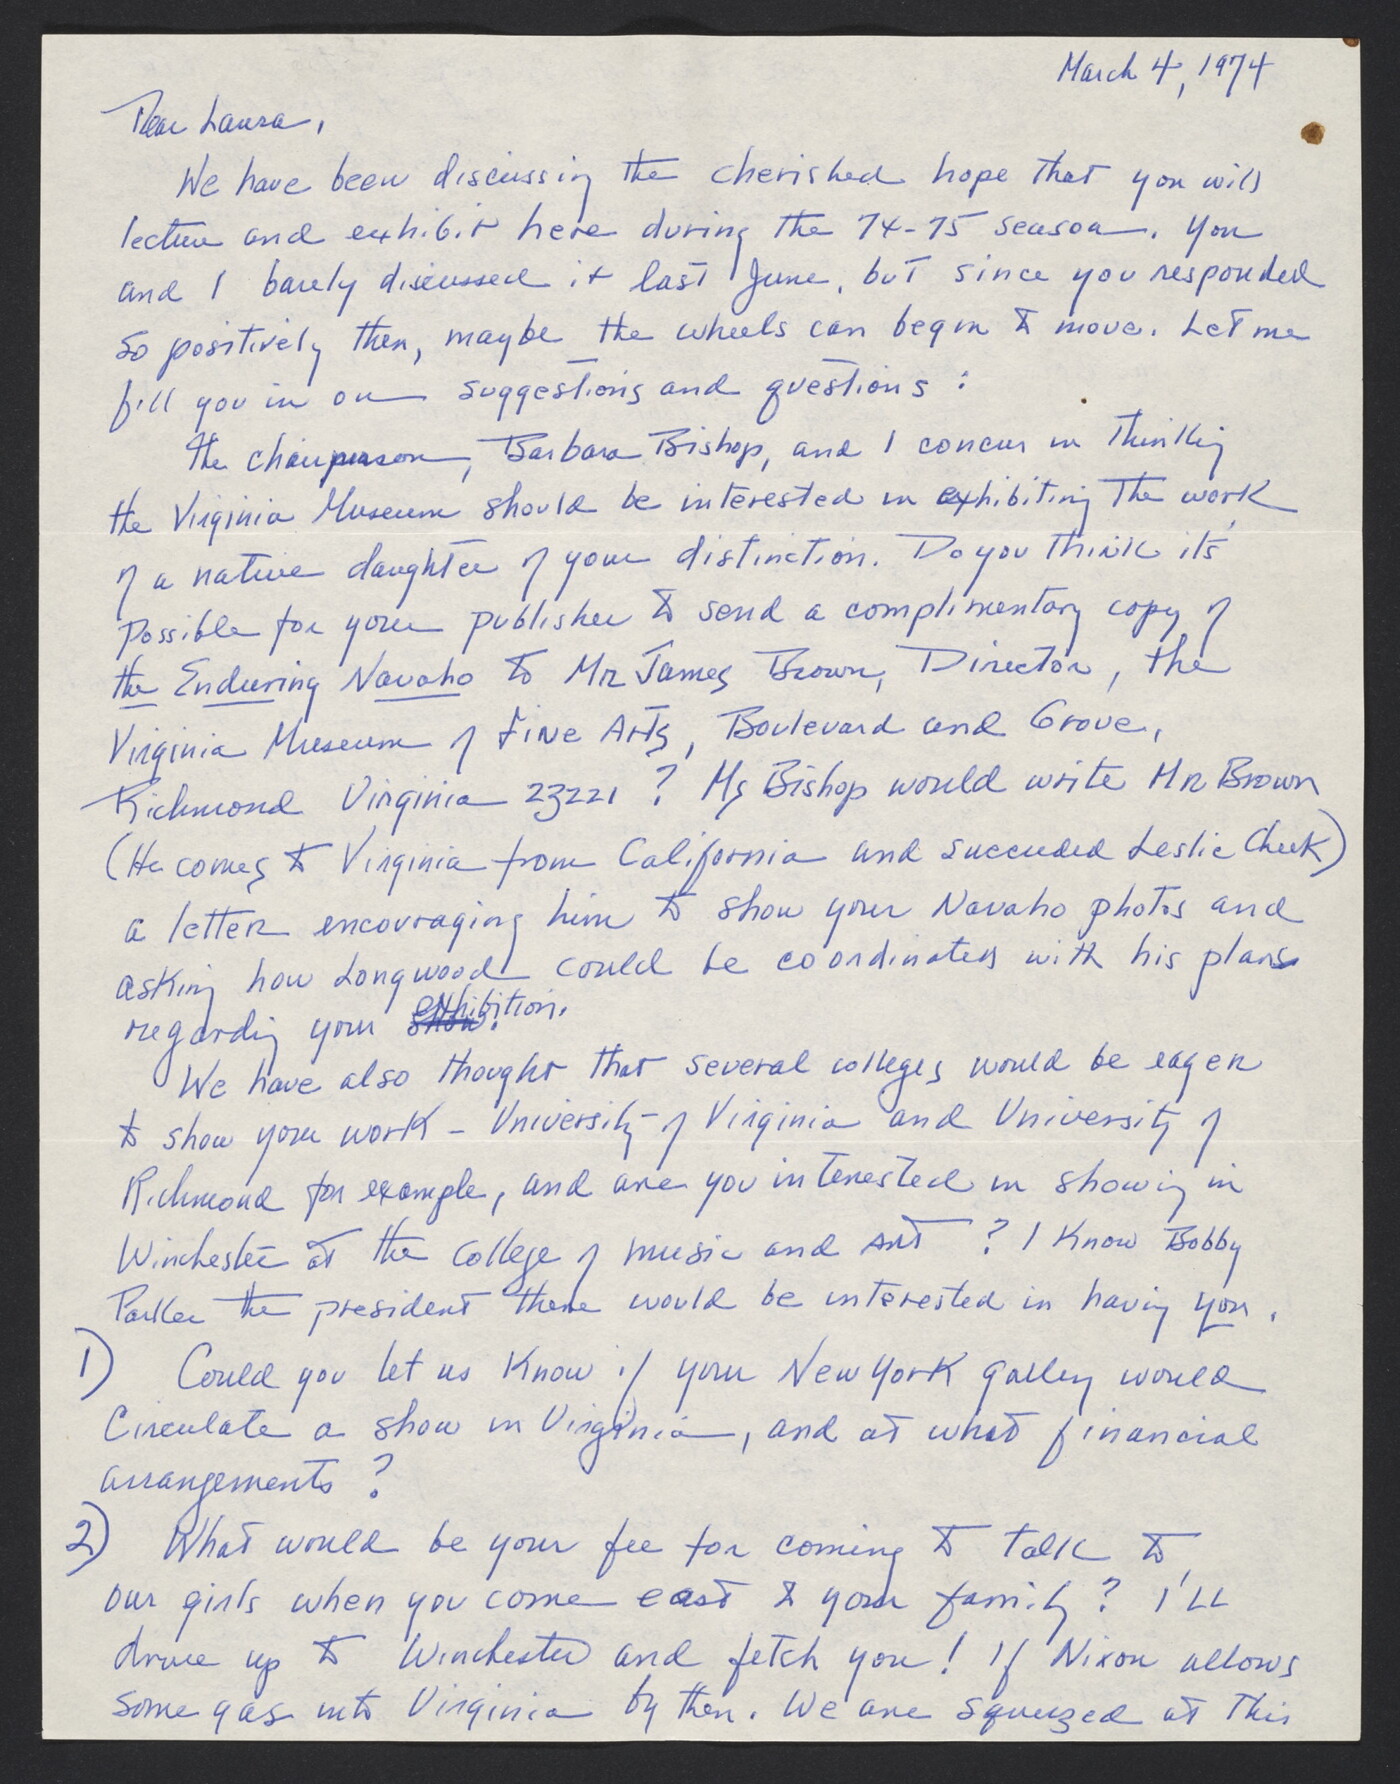 March 4, 1974
Dear Laura,
We have been discussing the cherished hope that you will
lecture and exhibit here during the 74-75 season. You
and I barely discussed it last June, but since you responded
so positively then, maybe the wheels can begin to move. Let me
fill you in on our suggestions and questions:
The chairperson, Barbara Bishop, and I concur in thinking
the Virginia Museum should be interested in exhibiting the work
of a native daughter of your distinction. Do you think it's
possible for your publisher to send a complimentary copy of
the Enduring Navaho to Mr James Brown, Director, the
Virginia Museum of Fine Arts, Boulevard and Grove,
Richmond Virginia 23221? Ms Bishop would write Mr Brown
(He comes to Virginia from California and succeeded Leslie Cheek)
a letter encouraging him to show your Navaho photos and
asking how Longwood could be coordinated with his plans
regarding your show. exhibition.
We have also thought that several colleges would be eager
to show your work - University of Virginia and University of
Richmond for example, and are you interested in showing in
Winchester at the college of music and art? I know Bobby
Parker the president there would be interested in having you.
1) Could you let us know if your New York gallery would
circulate a show in Virginia, and at what financial
arrangements?
2) What would be your fee for coming to talk to
our girls when you come east to your family? I'll
drive up to Winchester and fetch you! If Nixon allows
some gas into Virginia by then. We are squeezed at this